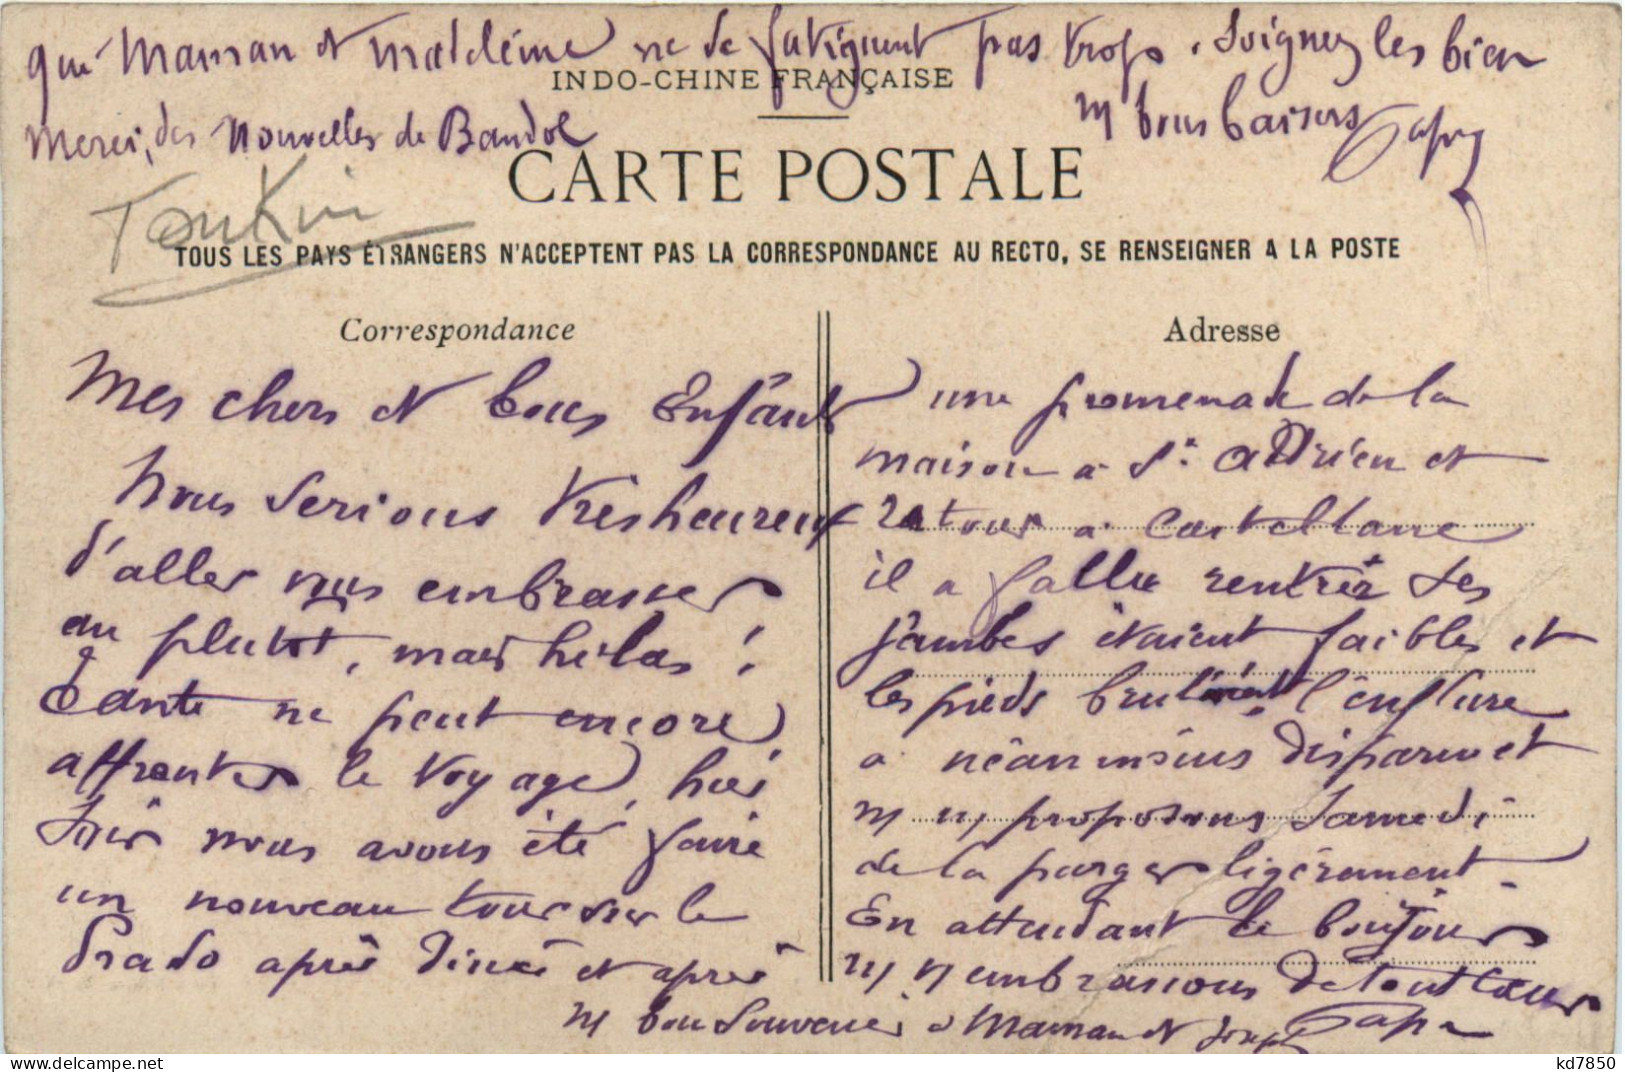 que Maman et Madeleine ne se fatiguent pas trop. Soignez les bien
INDO-CHINE FRANÇAISE
Merci, des Nouvelles de Bandol
M bons baisers Papa
CARTE POSTALE
Tonkin
TOUS LES PAYS ÉTRANGERS N'ACCEPTENT PAS LA CORRESPONDANCE AU RECTO, SE RENSEIGNER A LA POSTE
Correspondance
Mes chers et bons Enfants
Nous serions très heureux
d'aller vous embrasser
au plutôt, mais hélas !
Tante ne peut encore
affronter le voyage, hier
soir nous avons été faire
un nouveau tour sur le
Prado après diner et après
Adresse
une promenade de la
maison à St. Adrien et
retour à Castellane
il a fallu rentrer les
jambes étaient faibles et
les pieds brulaient l'enflure
a néanmoins disparu et
n n proposons Samedi
de la purger ligérement.
En attendant le bonjour
n n embrassons de tout cœur
M bon souvenir à Maman et Papa
kd7850